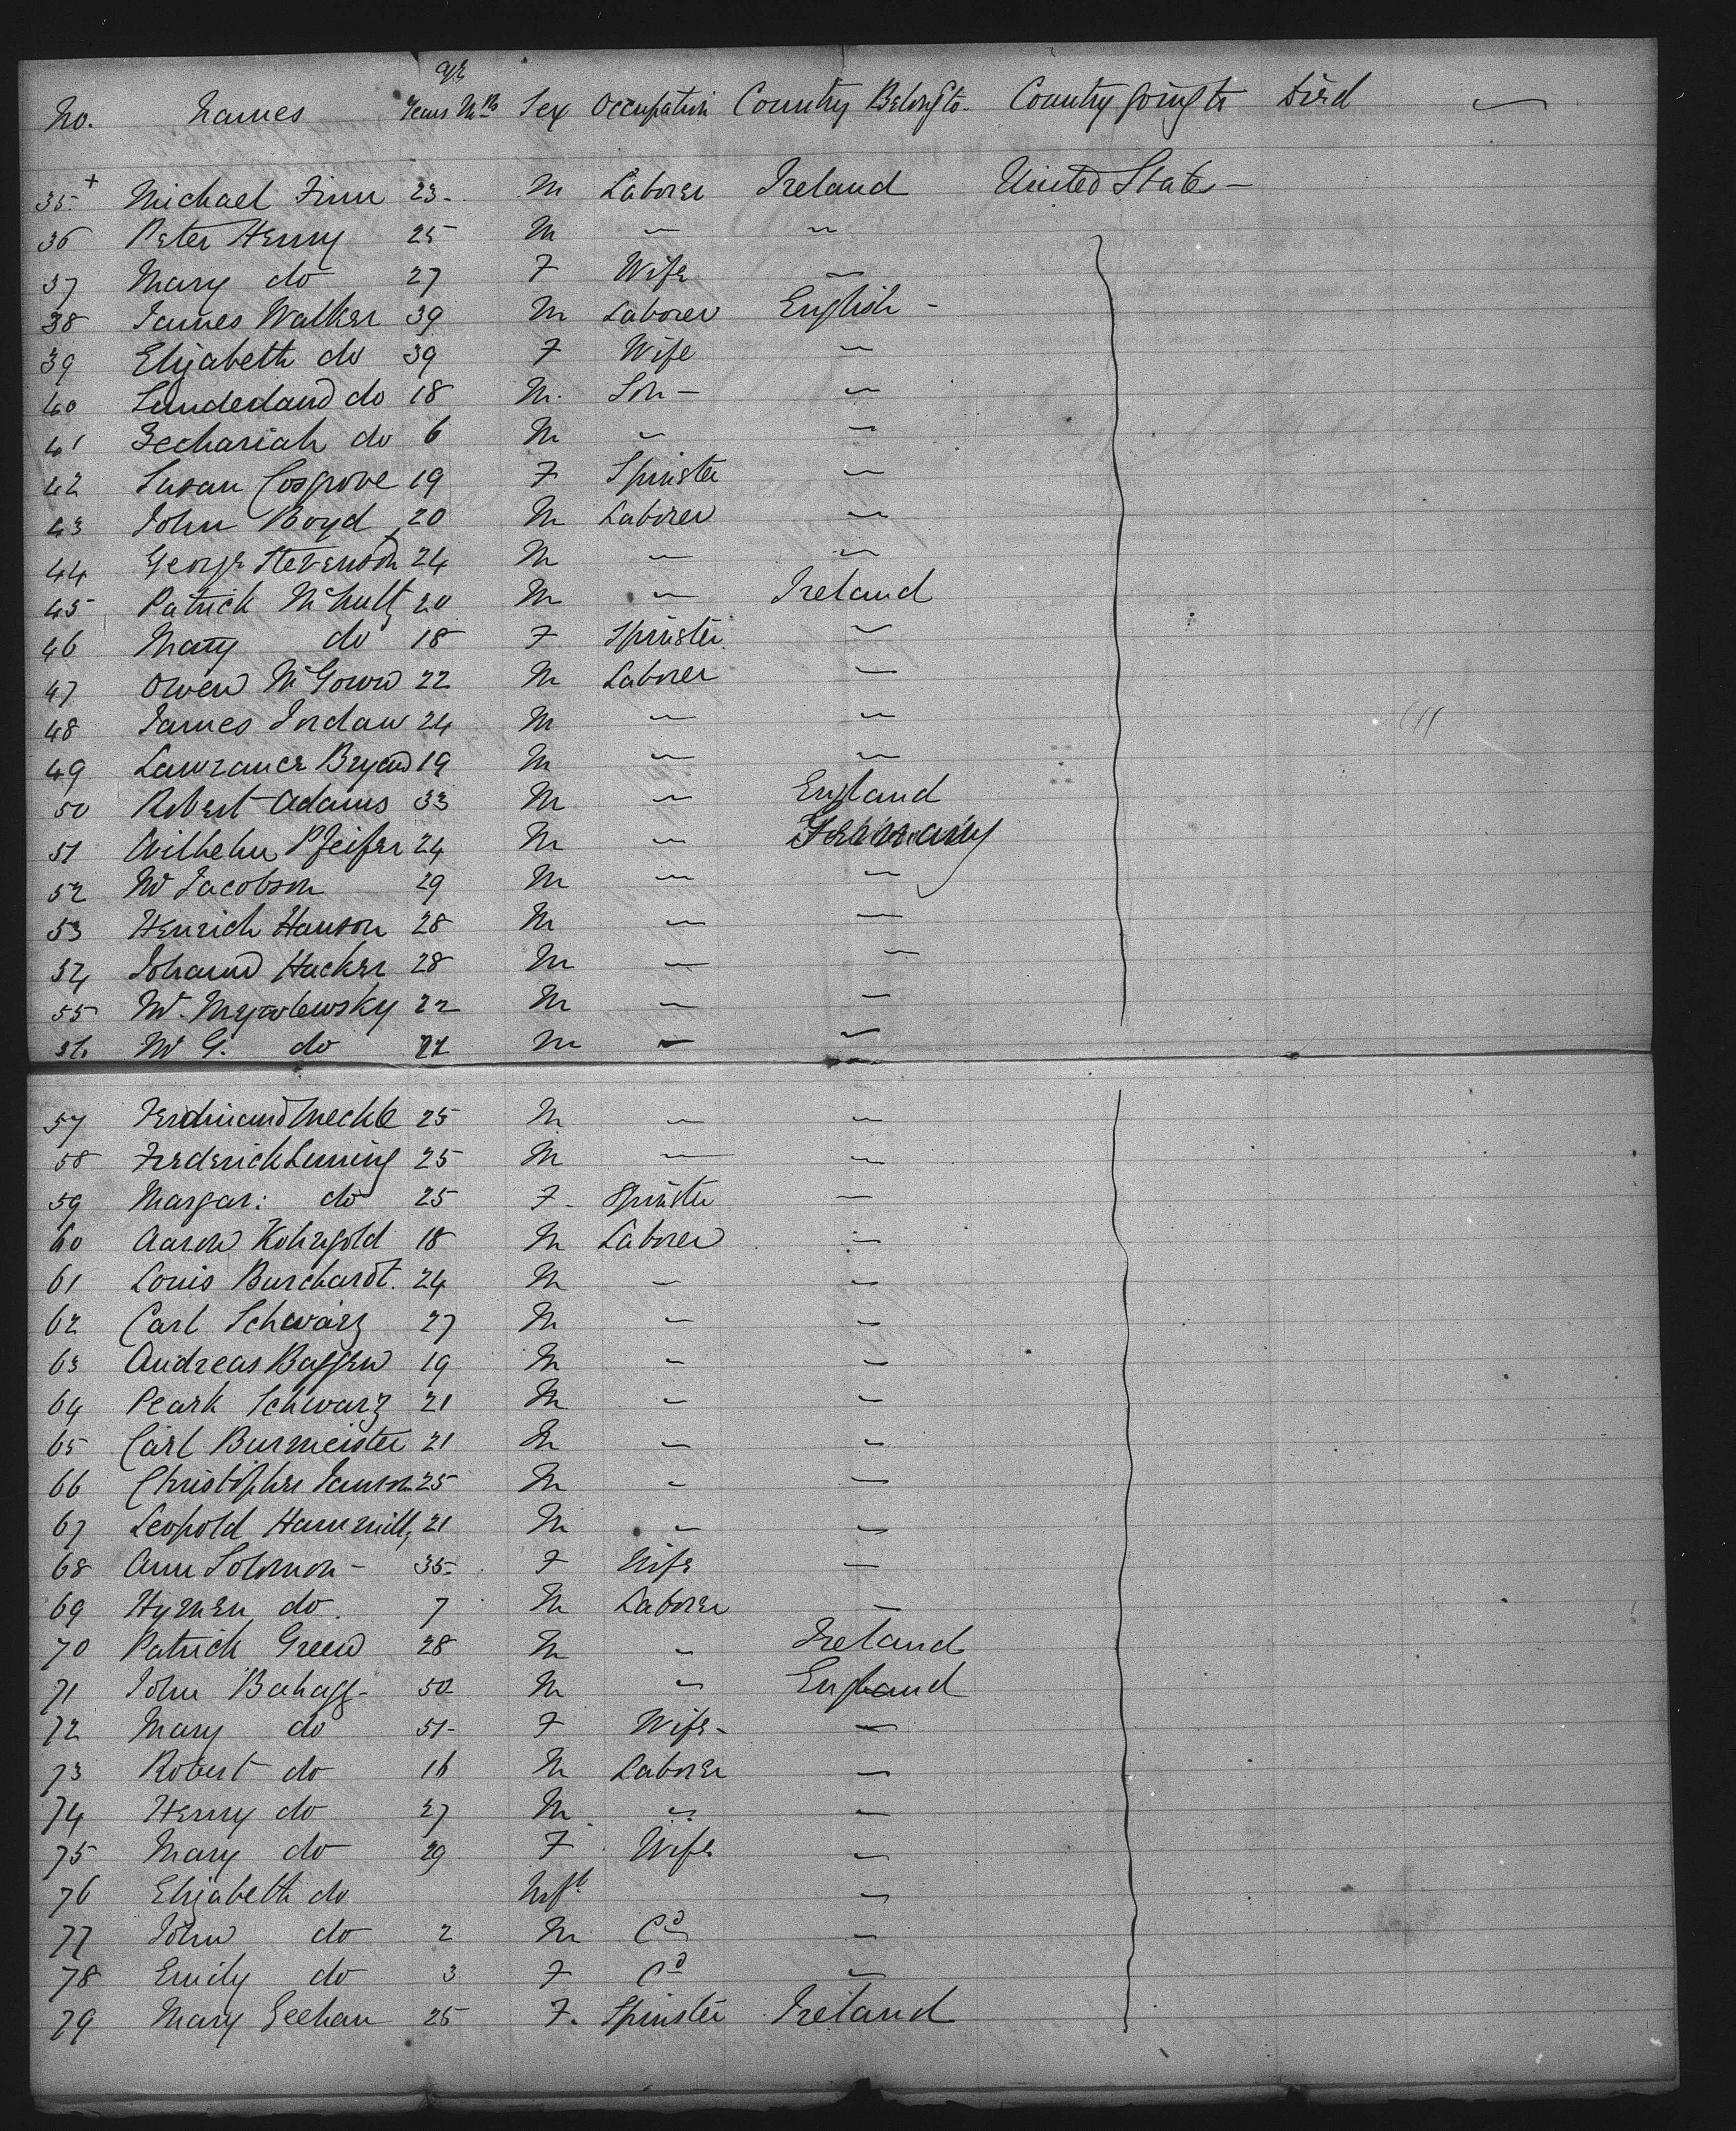 Age
No. Names Years Mths Sex Occupation Country Belongto Country going to Died
35 + Michael Finn 23 - M Laborer Ireland United States -
36 Peter Henry 25 M " "
37 Mary do 27 F Wife "
38 James Walker 39 M Laborer English -
39 Elizabeth do 39 F Wife "
40 do 18 M. Son - "
41 Zechariah do 6 M " "
42 Susan Cosgrove 19 F Spinster "
43 John Boyd 20 M Laborer "
44 George Stevenson 24 M " "
45 Patrick 20 M " Ireland
46 Mary do 18 F Spinster "
47 Owen McGown 22 M Laborer "
48 James Jordan 24 M " "
49 Lawrance 19 M " "
50 Robert Adams 33 M " England
51 Wilhelm Pfeifer 24 M " Germany
52 Jacobson 29 M " "
53 Henrich Hanson 28 M " "
54 Johann Hacker 28 M " "
55 22 M " "
56 G. do M " "
57 Ferdinand 25 M " "
58 Frederick 25 M " "
59 Margar: do 25 F - Spinster "
60 Aaron Kohngold 18 M Laborer "
61 Louis Burchardt. 24 M " "
62 Carl Schwarz 27 M " "
63 Andreas Baggen 19 M " "
64 Schwarz 21 M " "
65 Carl Burmeister 21 M " "
66 Christopher 25 M " "
67 Leopold 21 M " "
68 Ann Solomon - 35 - F Wife "
69 Hymen do. 7 M Laborer "
70 Patrick Green 28 M " Ireland
71 John 50 M " England
72 Mary do 51 - F Wife - "
73 Robert do 16 M Laborer "
74 Henry do 27 M " "
75 Mary do 29 F Wife "
76 Elizabeth do Inft "
77 John do 2 M Cd "
78 Emily do 3 F Cd "
79 Mary Geehan 25 F. Spinster Ireland